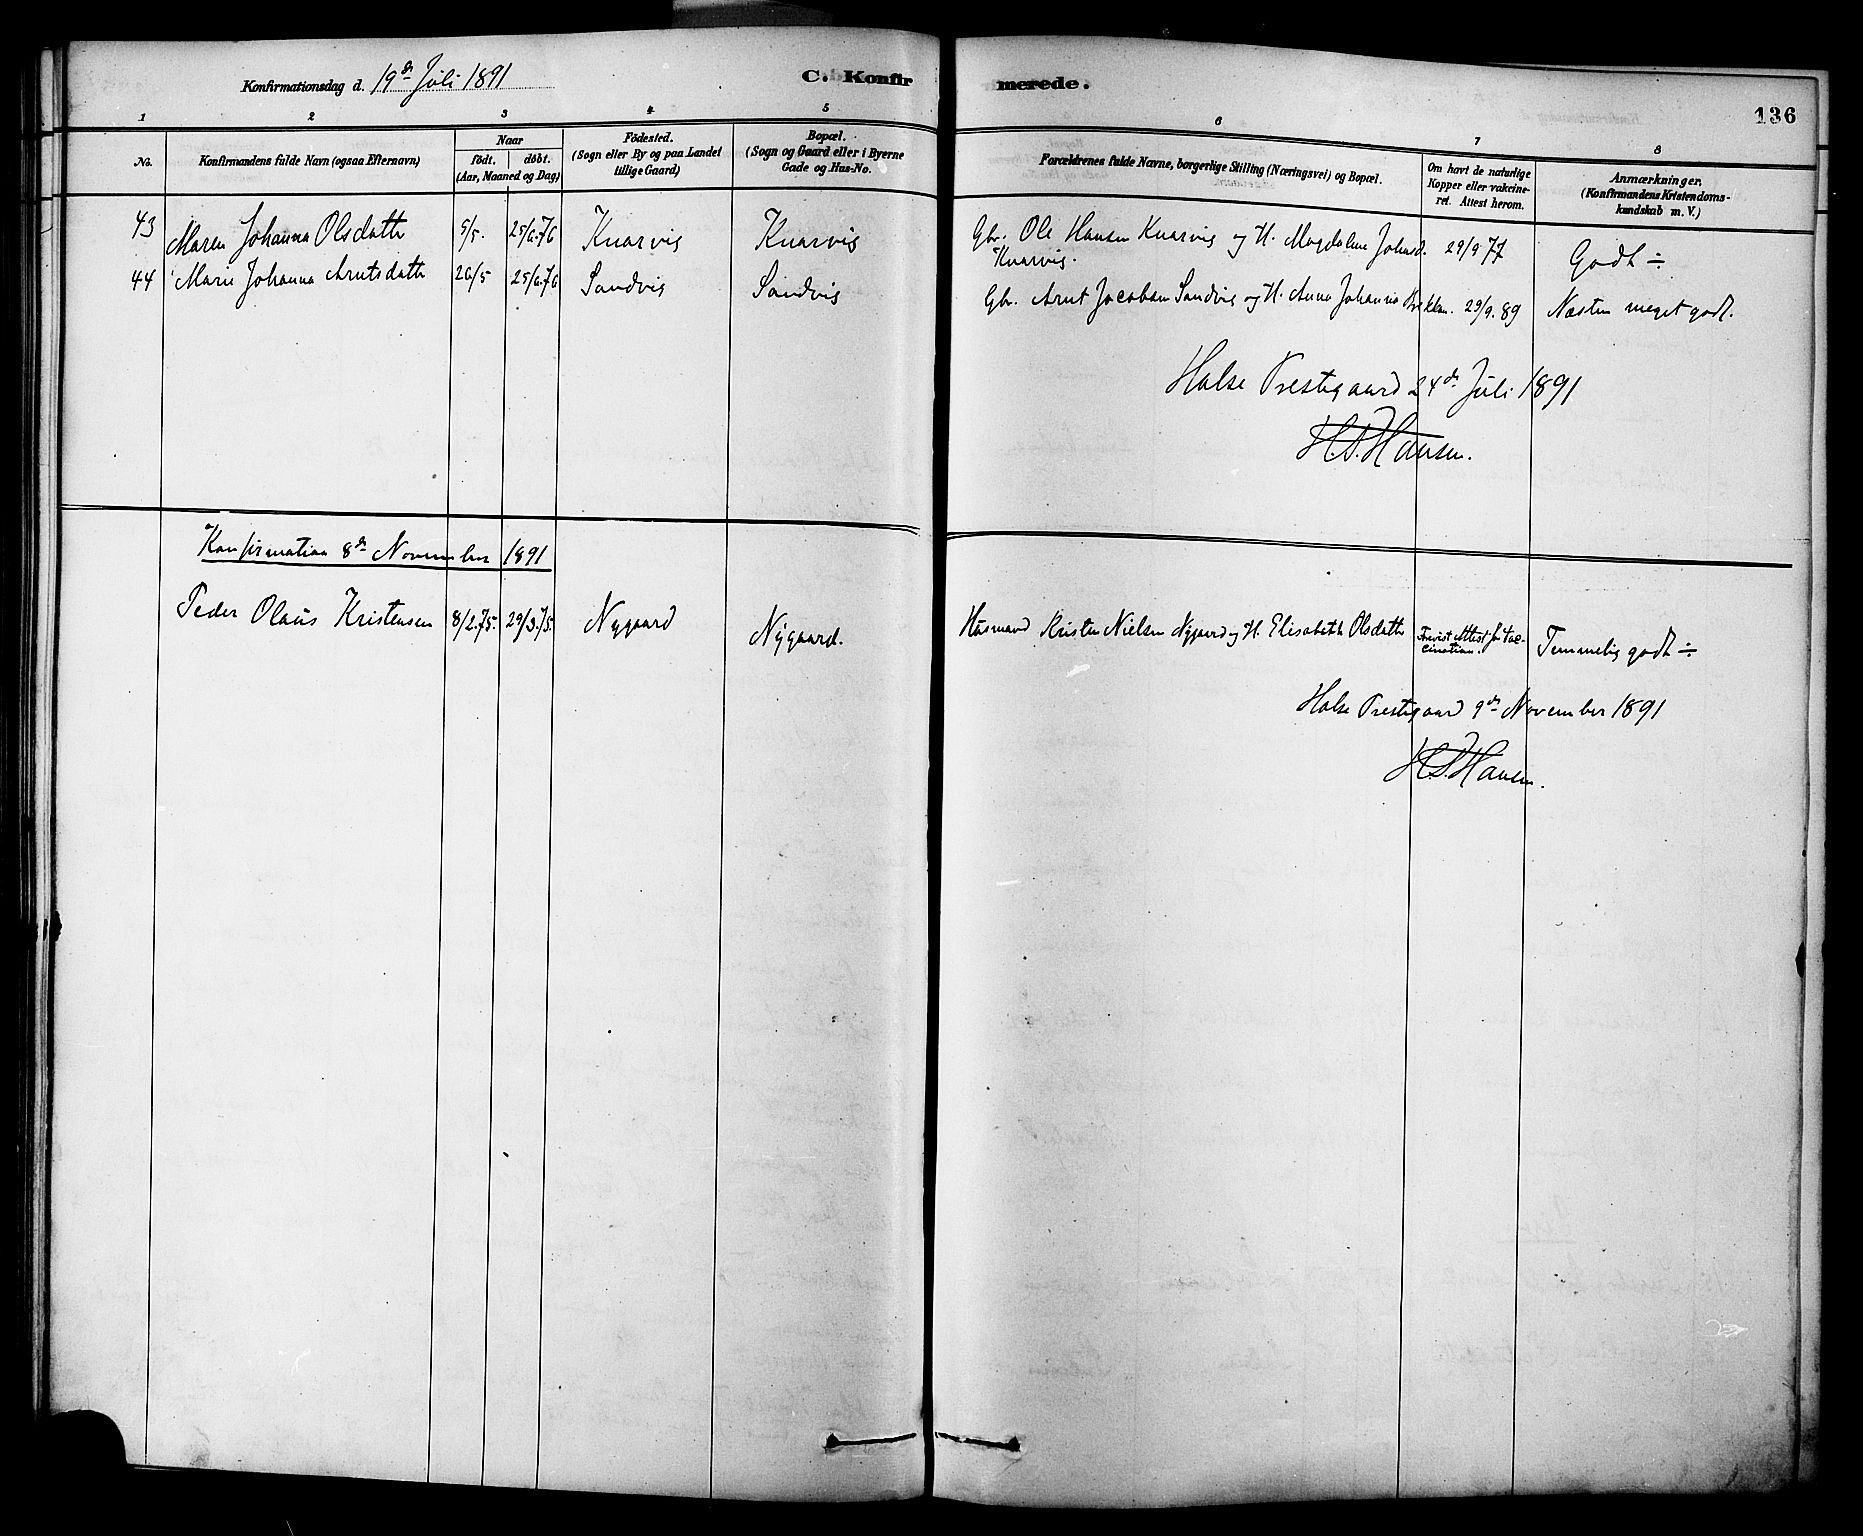 Konfirmationsdag d. 19de Juli 1891
C. Konfirmerede.
136
1 2 3 4 5 6 7 8
No.
Konfirmandens fulde Navn (ogsaa Efternavn)
Naar
födt. döbt.
(Aar, Maaned og Dag)
Födested.
(Sogn eller By og paa Landet
tillige Gaard)
Bopæl.
(Sogn og Gaard eller i Byerne
Gade og Hus-No.
Forældrenes fulde Navne, borgerlige Stilling (Næringsvei) og Bopæl.
Om havt de naturlige
Kopper eller vakcine-
ret. Attest herom.
Anmærkninger.
(Konfirmandens Kristendoms-
kundskab m. V.)
43 Maren Johanna Olsdatter 5/5. 25/6.76 Knarvig Knarvig Gbr. Ole Hansen Knarvig og H. Magdalene Johnsd. 29/9 77 Godt ÷
Knarvig.
44 Marie Johanna Arntsdatter 26/5 25/6.76 Sandvig Sandvig Gbr. Arnt Jacobsen Sandvig og H. Anna Johanna 29/9. 89 Næsten meget godt.
Halse Prestegaard 24de Juli 1891
H.S. Hansen.
Konfirmation 8de November 1891
Peder Olaüs Kristensen 8/2.75. 29/3.75. Nygaard Nygaard. Husmand Kristen Nielsen Nygaard og H. Elisabeth Olsdatter Attest for Vac-
cination. Temmelig godt ÷
Halse Prestegaard 9de November 1891
H.S. Hansen.